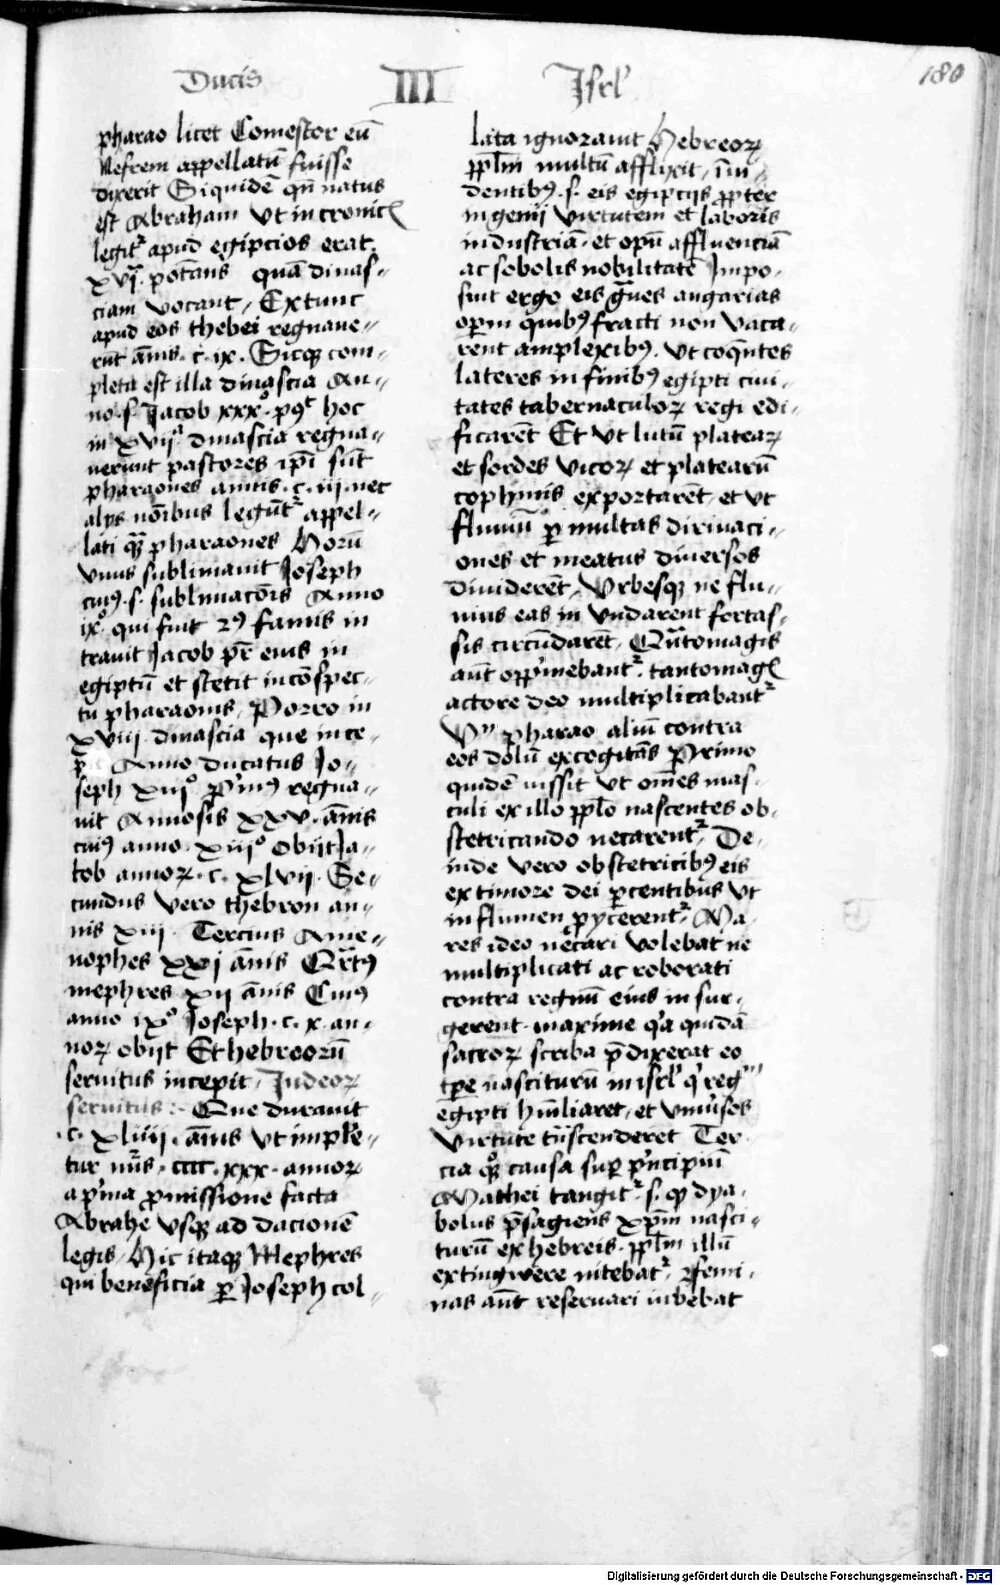 Ducis III Isrl'
180
pharao licet Comestor eū
Nefrem appellatū fuisse
dixerit Siquidē qn̄ natus
est Abraham ut in cronicꝭ
legitʳ apud egipcios erat
xvjᵃ. potēans quā dinas-
ciam vocant, Extunc
apud eos thebei regnave-
rūt ānis. c. ix. Sicqꝫ com-
pleta est illa dinascia An-
no .s. Jacob xxxᵒ. pꝰᵗ hoc
in xvijᵃ dinascia regna-
verunt pastores ip̄i sūt
pharaones annis. c. iij. nec
alijs nōibus legūtʳ appel-
lati qꝫ pharaones Horū
unus sublimavit Joseph
cuiꝰ .s. sublimacōis Anno
ixᵒ. qui fuit 2ꝰ famis in
travit Jacob pr̄ eius in
egiptū et stetit in cōspec-
tu pharaonis, Porro in
xviij dinascia que ince-
pit Anno ducatus Jo-
seph xiijᵒ pͥmꝰ regna-
vit Amosis xxv. ānis
cuiꝰ anno. xiijᵒ obijt Ja-
cob annoꝝ. c. xlvij. Se-
cundus vero thebron an-
nis xiij. Tercius Ame-
nophes xxj ānis Qrtꝰ
mephres xij ānis Cuiꝰ
anno ixᵒ Joseph .c. x. an-
noꝝ obijt Et hebreorū
servitus incepit, Judeoꝝ
servitus :- Que duravit
.c. xliiij. ānis ut imple-
tur nr̄us. cccc. xxx. annoꝝ
a pͥma ꝓmissione facta
Abrahe usqꝫ ad dacionē
legis, Hic itaqꝫ Mephres
qui beneficia ꝑ Joseph col-
lata ignoravit Hebreoꝝ
pp̄lm multū afflixit, īvi-
dentibꝰ .s. eis egipcijs ꝓpter
ingenij virtutem et laboris
industriā. et opū affluenciā
ac sobolis nobilitatē Impo-
suit ergo eis gͣves angarias
oꝑum quibꝰ fracti non vaca-
rent amplexibꝰ. ut coqūtes
lateres in finibꝰ egipti civi-
tates tabernaculoꝝ regi edi-
ficarēt Et ut lutū plateaꝝ
et sordes vicoꝝ et platearū
cophinis exportarēt et ut
fluviū ꝑ multas dirivaci-
ones et meatus diversos
dividerēt, Urbesqꝫ ne flu-
vius eas in undarent fortas-
sis circūdaret, Qntomagis
aūt oppͥmebantʳ. tantomagꝭ
actore deo multiplicabantʳ
Vn̄ pharao aliū contra
eos dolū excogitās Primo
quidē iussit ut om̄es mas-
culi ex illo pp̄lo nascentes ob-
stetricando necarentʳ, De-
inde vero obstetricibꝰ eis
ex timore dei ꝑcentibus ut
in flumen ꝓycerentʳ, Ma-
res ideo necari volebat ne
multiplicati ac roborati
contra regnū eius in sur-
gerent. maxime qͥa quidā
sacroꝝ scriba p̄dixerat eo
tp̄re nasciturū in isrl' qͥ regᵐ
egipti hūiliaret, et univ̄sos
virtute trāscenderet Ter-
cia qꝫ causa suꝑ pͥncipiū
Mathei tangitʳ .s. qꝫ dya-
bolus p̄sagiens xp̄m nasci-
turū ex hebreis. pp̄lm illū
extingwere nitebatʳ, Femi-
nas aūt reservari iubebat
Digitalisierung gefördert durch die Deutsche Forschungsgemeinschaft - DFG